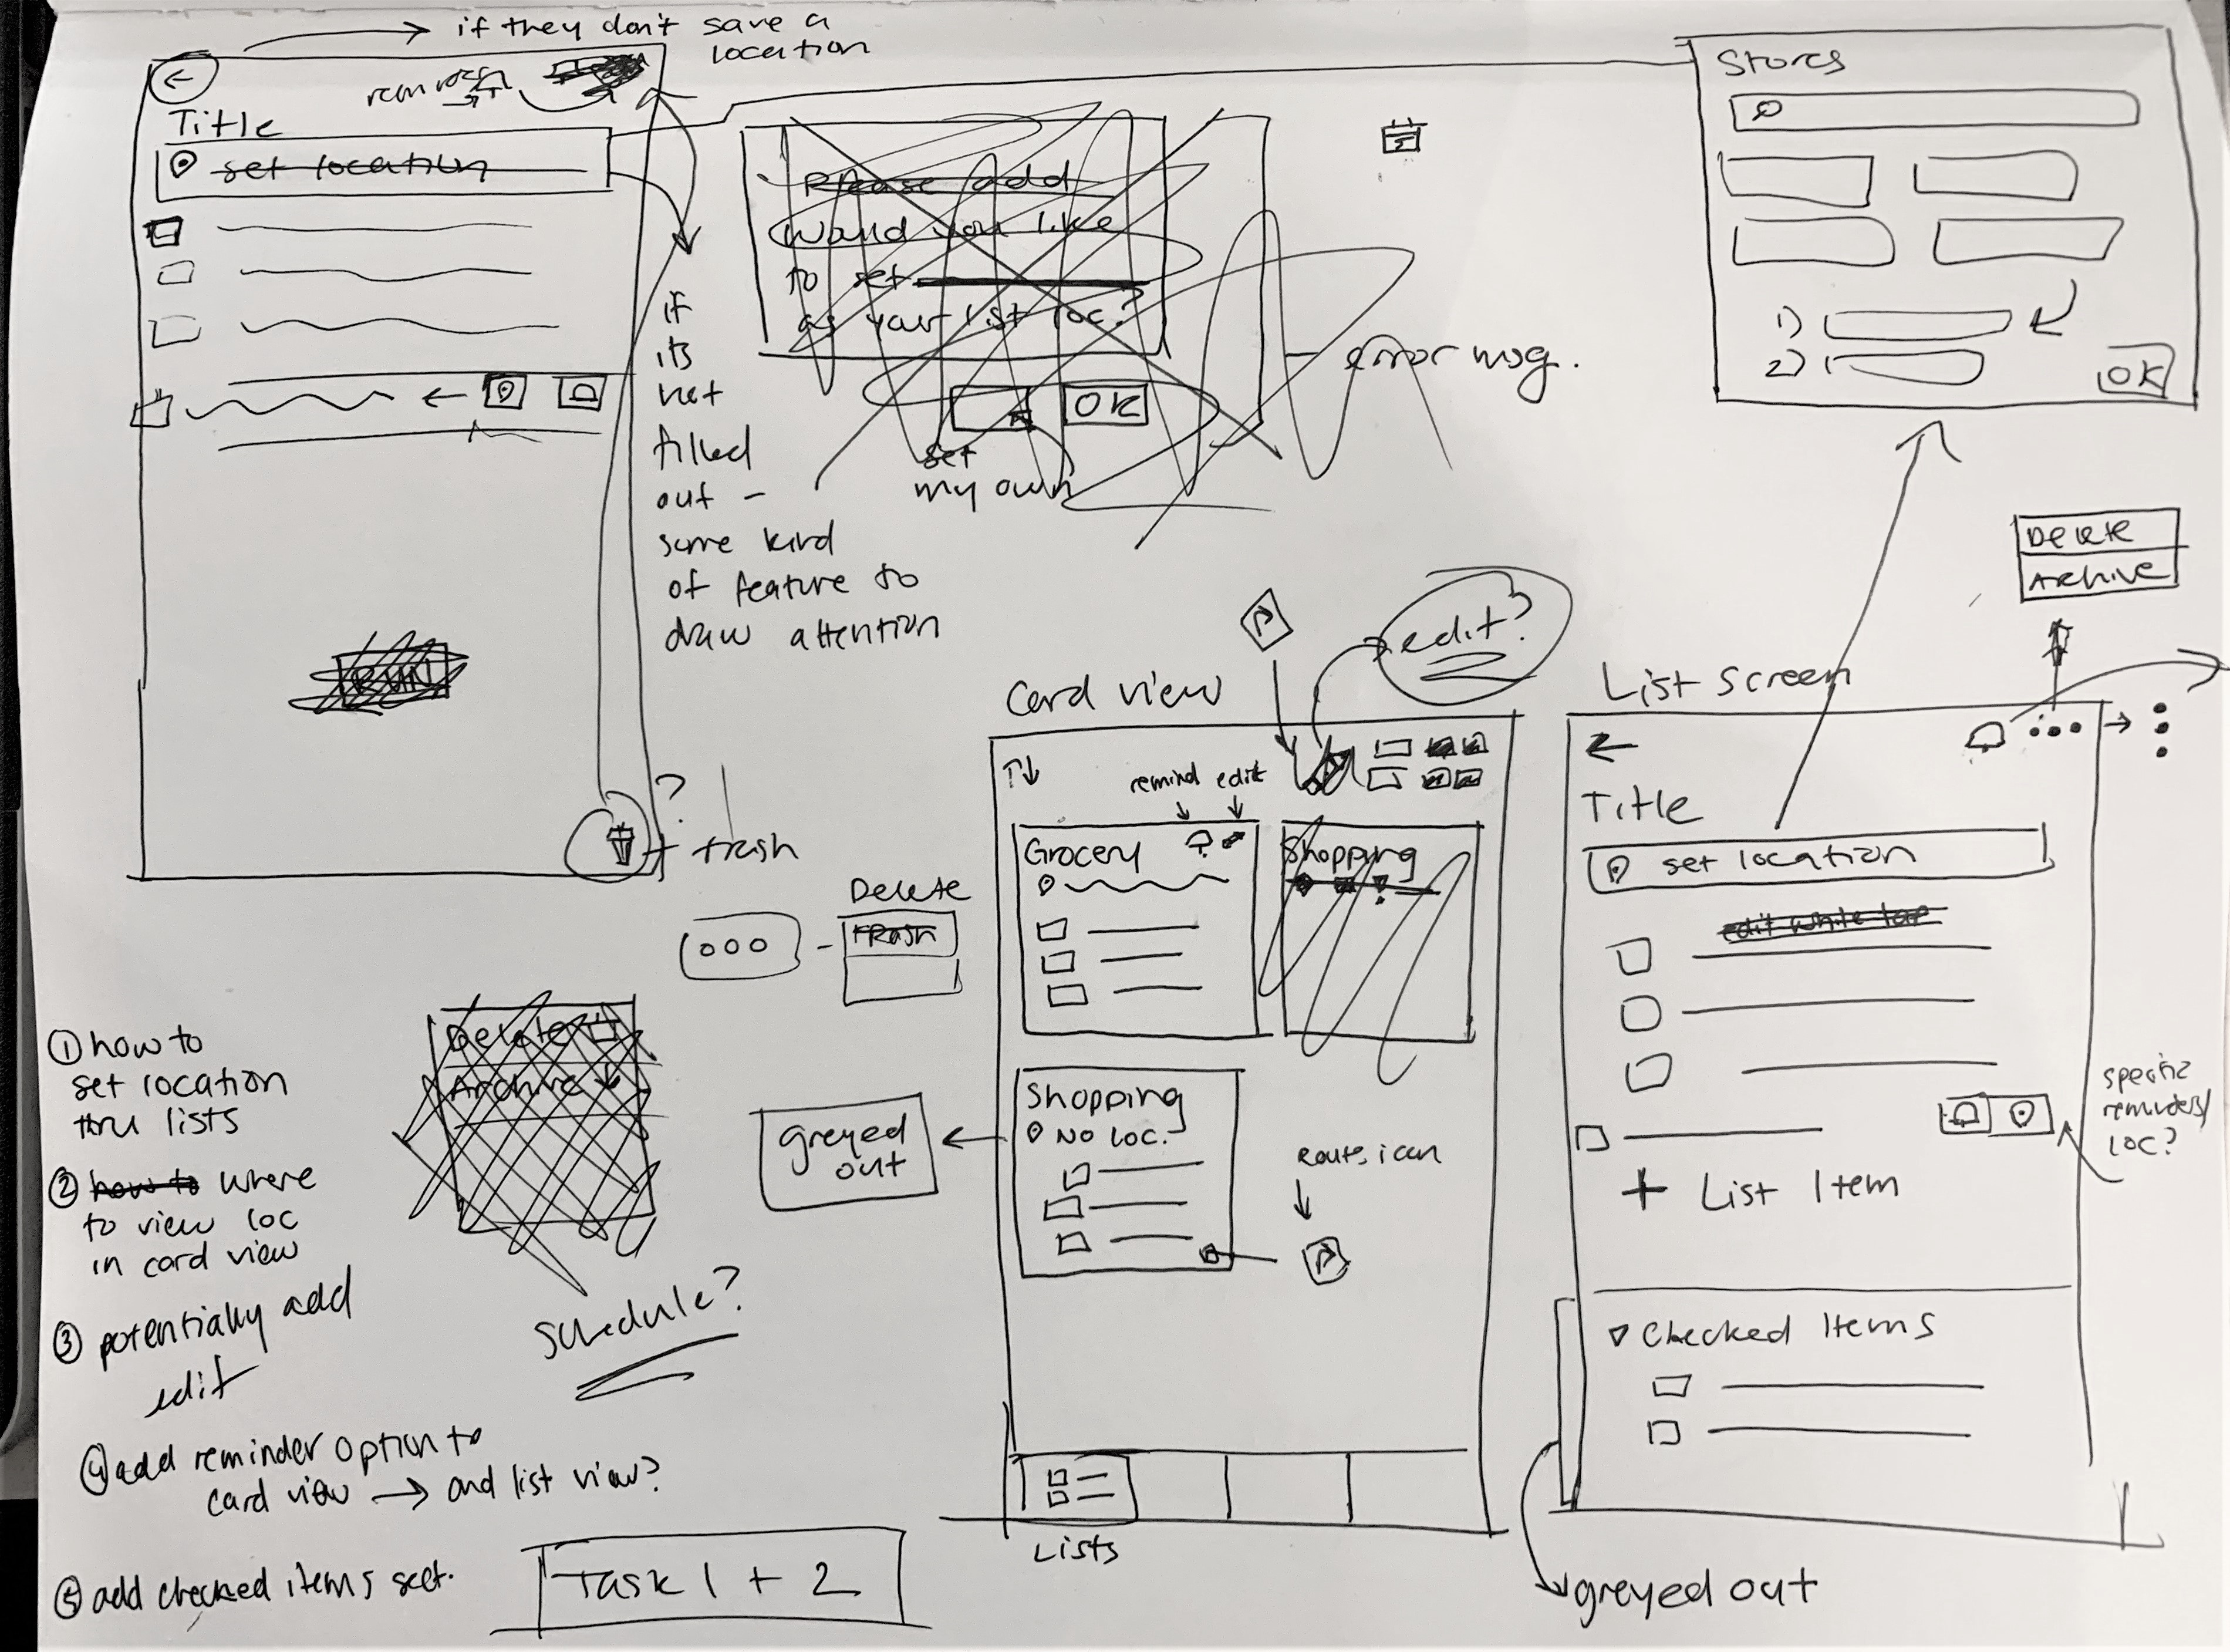 if they don't save a
location
Title
set location
if
its
not
filled
out -
some kind
of feature to
draw attention
Please add
Would you like
to set
as your list loc.?
OK
set
my own
error msg.
Stores
1)
2)
OK
Delete
Archive
edit?
RUN
?
+ trash
Delete
Trash
Delete
Archive
Schedule?
① how to
set location
thru lists
② how to where
to view loc
in card view
③ potentially add
edit
④ add reminder option to
card view → and list view?
⑤ add checked items sect.
Task 1 + 2
Card view
remind edit
Grocery
Shopping
Shopping
No Loc.
greyed
out
Route icon
Lists
List screen
Title
set location
edit while
specific
reminders/
loc?
+ List Item
Checked Items
greyed out